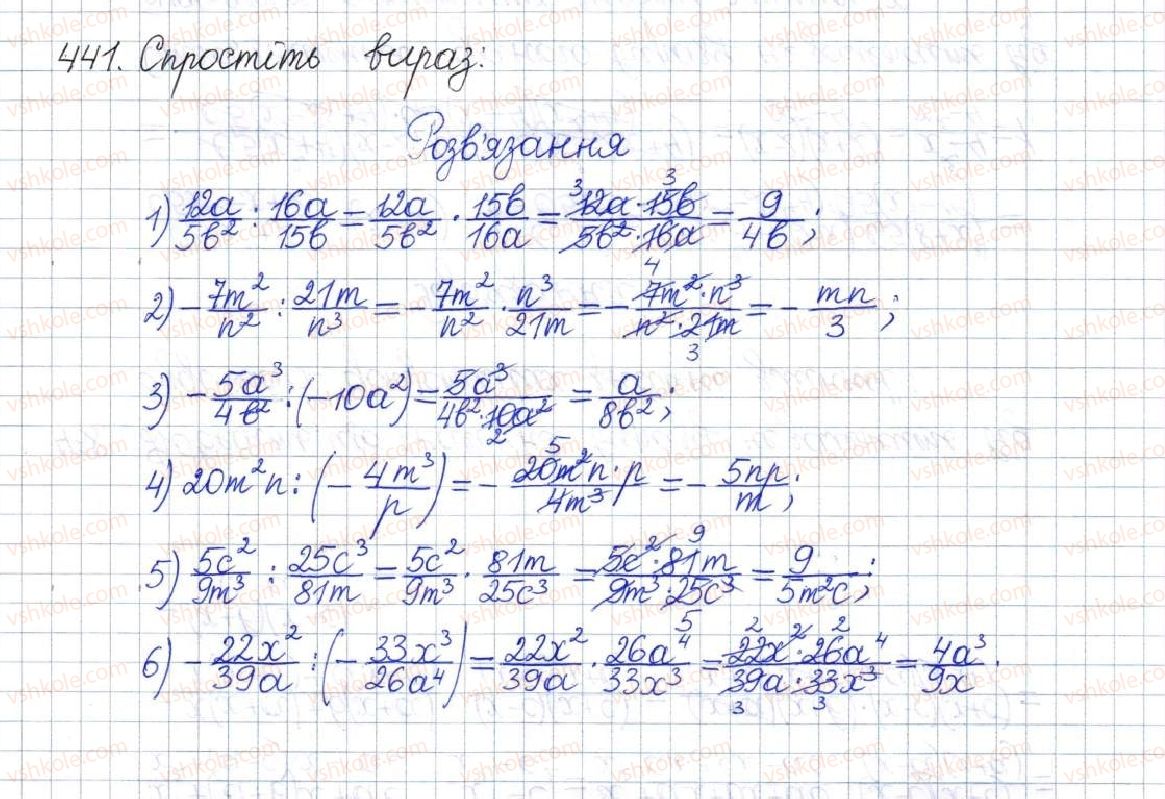 441. Спростіть вираз:
Розв'язання
1) 12a/5b² : 16a/15b = 12a/5b² · 15b/16a = 12a · 15b/5b² · 16a = 9/4b;
2) - 7m²/n² : 21m/n³ = - 7m²/n² · n³/21m = - 7m² · n³/n² · 21m = - mn/3;
3) - 5a³/4b² : (-10a²) = 5a³/4b² · 10a² = a/8b²;
4) 20m²n : (- 4m³/p) = - 20m²n · p/4m³ = - 5np/m;
5) 5c²/9m³ : 25c³/81m = 5c²/9m³ · 81m/25c³ = 5c² · 81m/9m³ · 25c³ = 9/5m²c;
6) - 22x²/39a : (- 33x³/26a⁴) = 22x²/39a · 26a⁴/33x³ = 22x² · 26a⁴/39a · 33x³ = 4a³/9x.